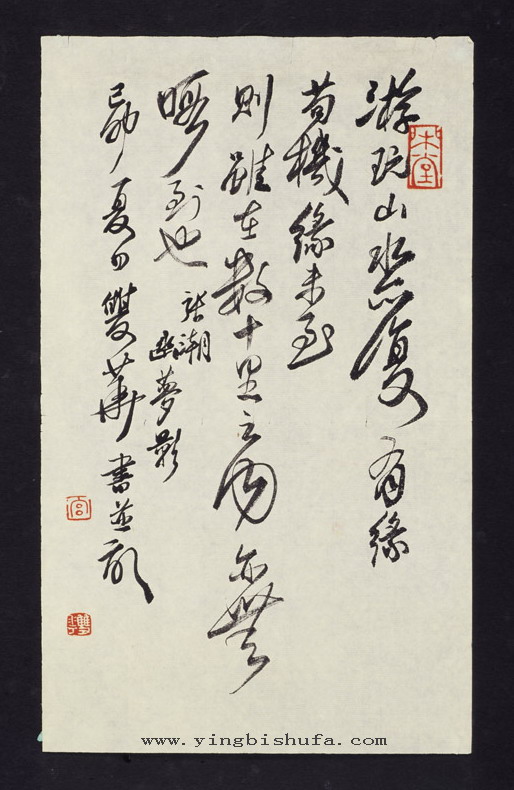 游玩山水亦復有緣
苟機緣未至
則雖在数十里之内亦無
暇到也
张潮
幽夢影
己卯夏日雙華書並
www.yingbishufa.com